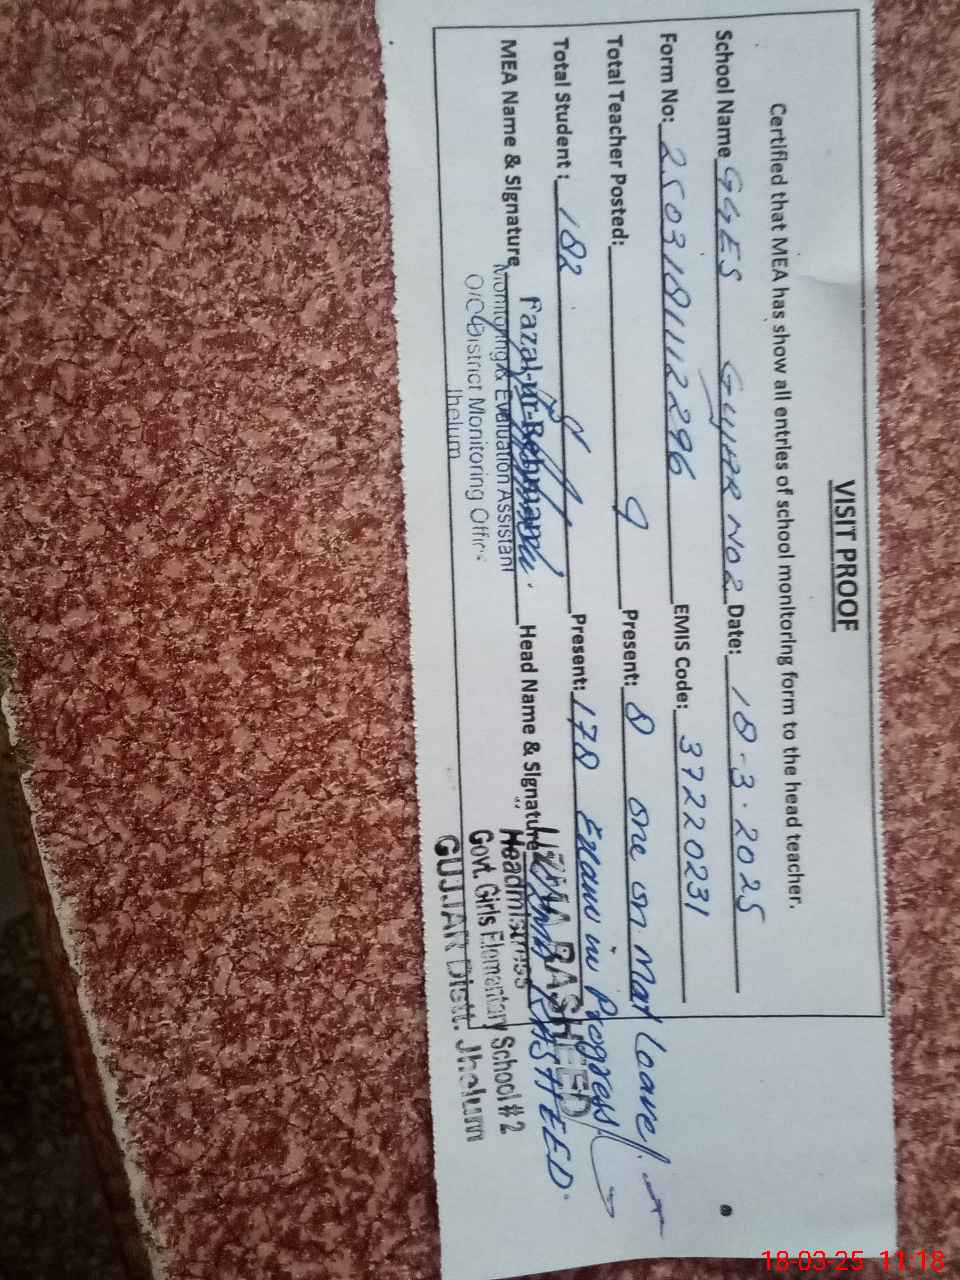 VISIT PROOF
Certified that MEA has show all entries of school monitoring form to the head teacher.
School Name GGES GUJAR NO 2 Date: 18-3-2025
Form No: 2503181112296 EMIS Code: 37220231
Total Teacher Posted: 9 Present: 8 one on Mat Leave
Total Student : 182 Present: 178 Exam in Progress
MEA Name & Signature Fazal-ur-Rehman Head Name & Signature RASHEED
Monitoring & Evaluation Assistant
O/O District Monitoring Office
Jhelum
UZMA RASHEED
Headmistress
Govt. Girls Elementary School # 2
GUJJAR Distt. Jhelum
18-03-25 11:18